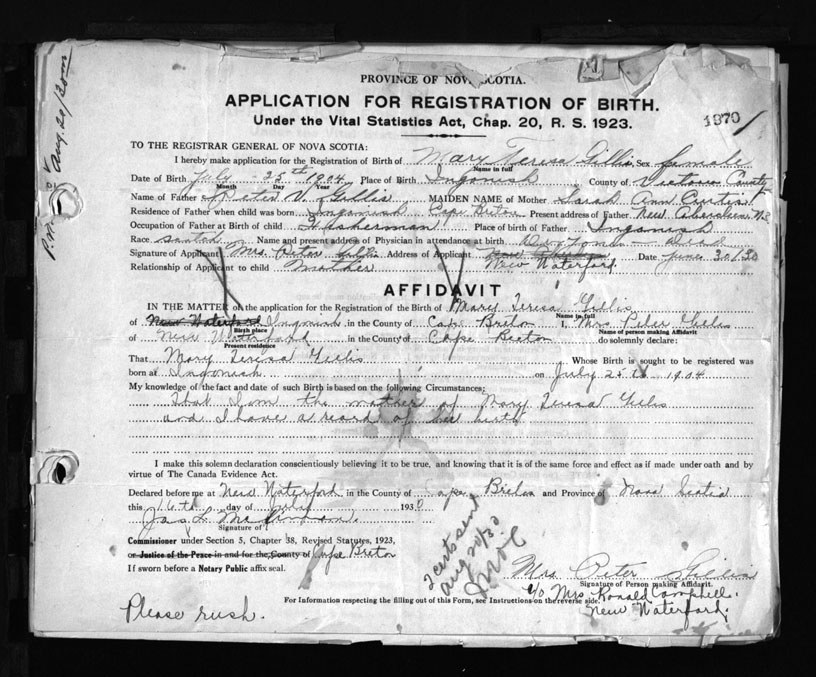 PROVINCE OF NOVA SCOTIA.
APPLICATION FOR REGISTRATION OF BIRTH.
Under the Vital Statistics Act, Chap. 20, R. S. 1923.
1870
TO THE REGISTRAR GENERAL OF NOVA SCOTIA:
I hereby make application for the Registration of Birth of Mary Teresa Gillis Sex female
Name in full
Date of Birth July 25th 1904 Place of Birth Ingonish County of Victoria County
Month Day Year
Name of Father Peter V. Gillis MAIDEN NAME of Mother Sarah Ann Curtis
Residence of Father when child was born Ingonish Cape Breton Present address of Father New Aberdeen N.S
Occupation of Father at Birth of child Fisherman Place of birth of Father Ingonish
Race Name and present address of Physician in attendance at birth
Signature of Applicant Mrs Peter Gillis Address of Applicant New Waterford. Date June 30/30
Relationship of Applicant to child Mother
AFFIDAVIT
IN THE MATTER of the application for the Registration of the Birth of Mary Teresa Gillis
Name in full
of New Waterford Ingonish in the County of Cape Breton I, Mrs Peter Gillis
Birth place Name of person making Affidavit
of New Waterford in the County of Cape Breton do solemnly declare:
Present residence
That Mary Teresa Gillis Whose Birth is sought to be registered was
born at Ingonish on July 25th 1904
My knowledge of the fact and date of such Birth is based on the following Circumstances:
That I am the mother of Mary Teresa Gillis
and I have a record of her birth
I make this solemn declaration conscientiously believing it to be true, and knowing that it is of the same force and effect as if made under oath and by
virtue of The Canada Evidence Act.
Declared before me at New Waterford in the County of Cape Breton and Province of Nova Scotia
this 16th day of July 1930
Jas L.
Signature of
Commissioner under Section 5, Chapter 38, Revised Statutes, 1923,
or Justice of the Peace in and for the County of Cape Breton
If sworn before a Notary Public affix seal.
Mrs Peter Gillis
Signature of Person making Affidavit.
c/o Mrs Ronald Campbell.
For Information respecting the filling out of this Form, see Instructions on the reverse side.
New Waterford.
Please rush.
sent
Aug 20/30